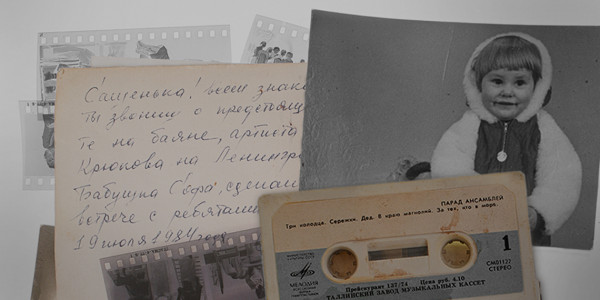 Сашенька! всем знако
ты звонки о предстоящ
те на баяне, артиста
Крюкова на Ленингр
Бабушка Сфра, сделан
встрече с ребятами
19 июля 1984 года
ПАРАД АНСАМБЛЕЙ
Три колодца. Сережки. Два. В краю магнолий. За тех, кто в море.
1
МЕЛОДИЯ
СМ01137
СТЕРЕО
Прейскурант 137/74 Цена руб. 4.10
ТАЛЛИНСКИЙ ЗАВОД МУЗЫКАЛЬНЫХ КАССЕТ